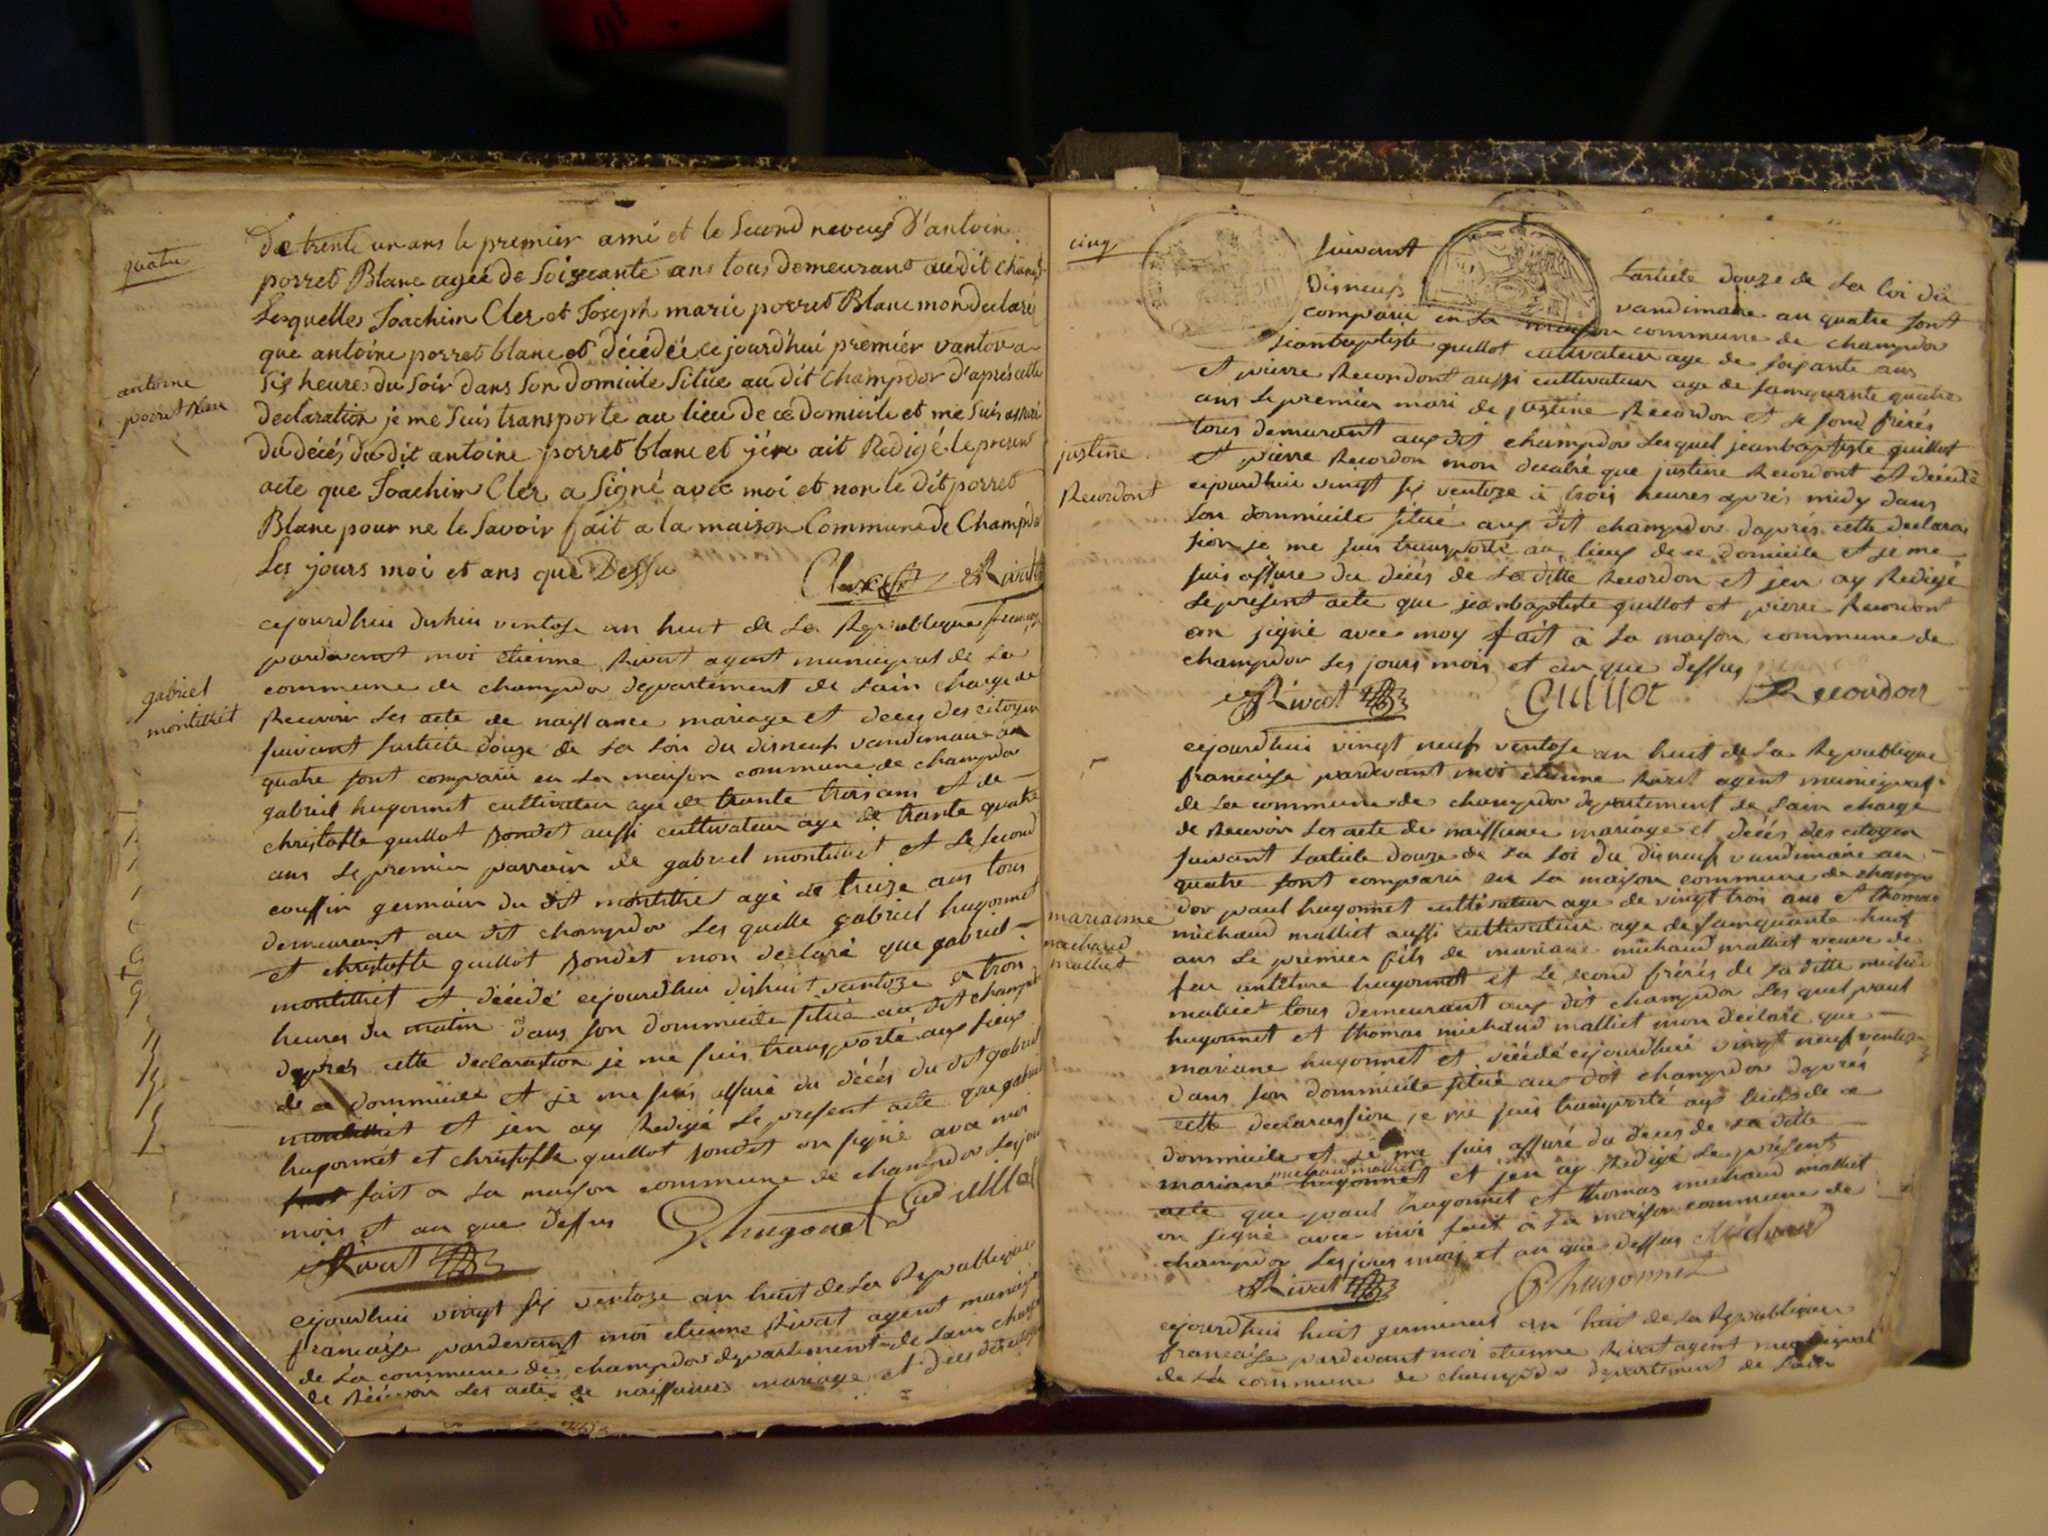 quatre
De trente un ans le premier ami et le Second neveus D'antoine
porret Blanc agée de Soixcante ans tous demeurant audit Champd
Lesquelles Joachim Cler et Joseph marie porret Blanc mon declaré
que antoine porret blanc et décédé ce jourd'hui premier vantoz a
Six heures du Soir dans Son domicile Situe au dit Champdor D'aprés cette
antoine
porret blanc
declaration je me Suis transporte au lieu de ce domicile et me Suis assuré
du décés du dit antoine porret blanc et j'en ait Redigé le present
acte que Joachim Cler a Signé avec moi et non le dit porret
Blanc pour ne le Savoir fait a la maison Commune de Champdor
Les jours moi et ans que Dessu
Clerc eRivat
cejourdhui dishui ventose an huit de La Republique francaise
pardevant moi etienne Rivat agent municipal de La
gabriel
montillet
commune de champdor departement de Lain charge de
Recevoir Les acte de naissance mariage et deces des citoyen
suivant Larticle douze de La Loi du disneuf vandimaire an
quatre sont comparu en La maison commune de champdor
gabriel hugonnet cultivateur age de trante trois ans et de
christofle guillot Bondet aussi cultivateur age de trante quatre
ans Le premier parrain de gabriel montillet et Le second
coussin germain du dit montillet agé de treize ans tous
demeurant au dit champdor Les quelle gabriel hugonnet
et christofle guillot Bondet mon declaré que gabriel
montillet et décédé cejourdhui dishuit vantoze a troi
heures du matin dans son dommicile situé au dit champdor
dapres cette declaration je me suis transporté aux lieux
de ce dommicile et je me suis assuré du décés du dit gabriel
montillet et jen ay Redigé Le present acte que gabriel
hugonnet et christofle guillot Bondet on signé avec moi
fait a La maison commune de champdor Les jour
mois et an que dessus G. hugonet Guillot
eRivat
cejourdhui vingt six ventoze an huit de La Republique
francaise pardevant moi etienne Rivat agent municipal
de La commune de champdor departement de Lain charge
de Recevoir Les acte de naissance mariage et deces des citoyen
cinq
suivant Larticle douze de La Loi du
Disneuf vandimaire an quatre sont
comparu en La maison commune de champdor
jeanbaptiste guillot cultivateur age de soixante ans
et pierre Recordont aussi cultivateur age de sainquante quatre
ans Le premier mari de justine Recordon et Le second freres
tous demurant aux dit champdor Lesquel jeanbaptiste guillot
justine
Recordont
et pierre Recordon mon declaré que justine Recordont et décédé
cejourdhui vingt six ventoze à trois heures aprés midy dans
son dommicile situé aux dit champdor daprés cette declara
sion je me suis transporté au lieux de ce domicile et je me
suis assure du décés de La ditte Recordon et jen ay Redigé
Le present acte que jeanbaptiste guillot et pierre Recordont
on signé avec moy fait à La maison commune de
champdor Les jours mois et an que dessus
eRivat Guillot Recordon
cejourdhui vingt neuf ventose an huit de La Republique
francaise pardevant moi etienne Rivat agent municipal
de La commune de champdor departement de Lain chargé
de Recevoir Les acte de naissance mariage et décés des citoyen
suivant Larticle douze de La Loi du disneuf vandimaire an
quatre sont comparu en La maison commune de champ
dor paul hugonnet cultivateur age de vingt trois ans et thomas
marianne
michaud
malliet
michaud malliet aussi cultivateur age de sainquante huit
ans Le premier fils de mariane michaud malliet veuve de
feu hugonnet et Le second fréres de La ditte michaud
malliet tous demeurant aux dit champdor Les quel paul
hugonnet et thomas michaud malliet mon declaré que
mariane hugonnet et décédé cejourdhui vingt neuf ventoze
dans son dommicile situé aux dit champdor daprés
cette declarassion je me suis transporté aux lieux de ce
dommicile et je me suis assuré du deces de La ditte
michaud malliet
mariane hugonnet et jen ay Redigé Le présent
acte que paul hugonnet et thomas michaud malliet
on signé avec moi fait à La maison commune de
champdor Les jours mois et an que dessus Michaud
eRivat P hugonnet
cejourdhui huit germinal an huit de La Republique
francaise pardevant moi etienne Rivat agent municipal
de La commune de champdor departement de Lain